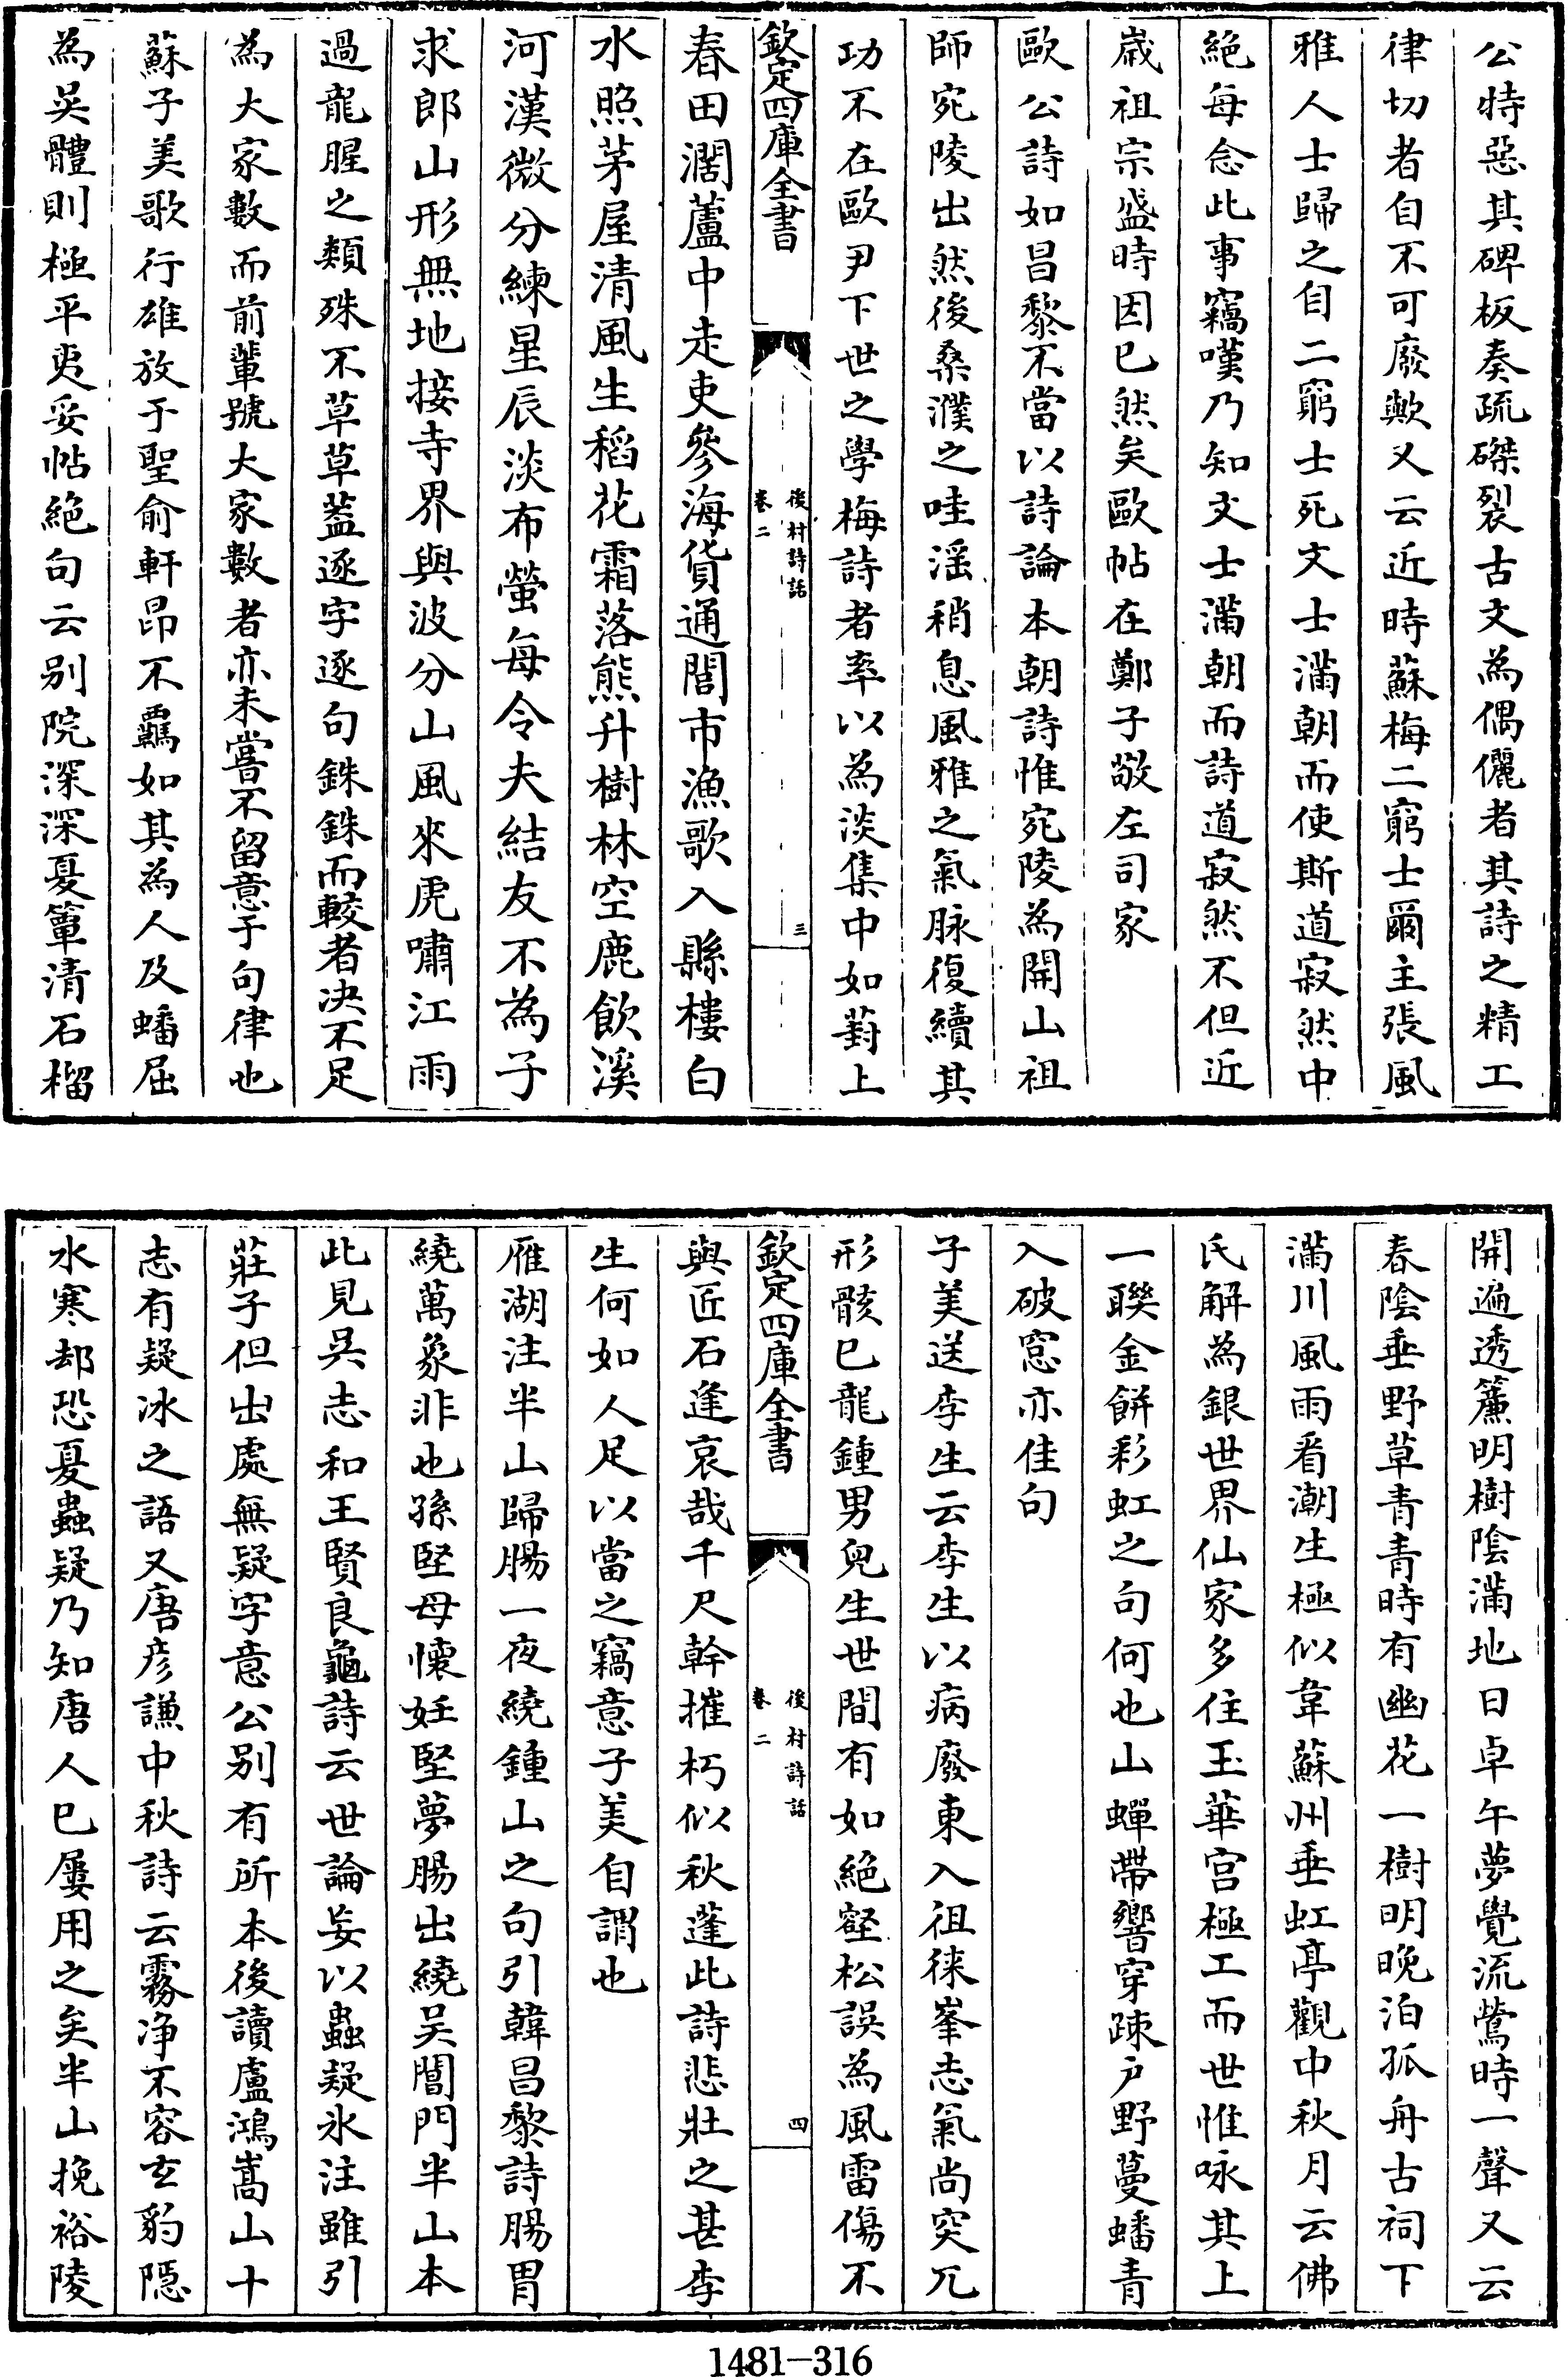 公特惡其碑板奏疏磔裂古文為偶儷者其詩之精工
律切者自不可廢歟又云近時蘇梅二窮士爾主張風
雅人士歸之自二窮士死文士滿朝而使斯道寂然中
絕每念此事竊嘆乃知文士滿朝而詩道寂然不但近
嵗祖宗盛時因已然矣歐帖在鄭子敬左司家
歐公詩如昌黎不當以詩論本朝詩惟宛陵為開山祖
師宛陵出然後桑濮之哇淫稍息風雅之氣脉復續其
功不在歐尹下世之學梅詩者率以為淡集中如葑上
欽定四庫全書
後村詩話
卷二
三
春田濶蘆中走吏參海貨通閭市漁歌入縣樓白
水照茅屋清風生稻花霜落熊升樹林空鹿飲溪
河漢微分練星辰淡布螢每令夫結友不為子
求郎山形無地接寺界與波分山風來虎嘯江雨
過龍腥之類殊不草草葢逐字逐句銖銖而較者决不足
為大家數而前輩號大家數者亦未嘗不留意于句律也
蘇子美歌行雄放于聖俞軒昂不羈如其為人及蟠屈
為吴體則極平夷妥帖絕句云别院深深夏簟清石榴
開遍透簾明樹隂滿地日卓午夢覺流鶯時一聲又云
春隂垂野草青青時有幽花一樹明晚泊孤舟古祠下
滿川風雨看潮生極似韋蘇州垂虹亭觀中秋月云佛
氏解為銀世界仙家多住玉華宫極工而世惟咏其上
一聨金餅彩虹之句何也山蟬帶響穿疎户野蔓蟠青
入破窓亦佳句
子美送李生云李生以病廢東入徂徠峯志氣尚突兀
形骸已龍鍾男兒生世間有如絕壑松誤為風雷傷不
欽定四庫全書
後村詩話
卷二
四
與匠石逢哀哉千尺幹摧朽似秋蓬此詩悲壯之甚李
生何如人足以當之竊意子美自謂也
雁湖注半山歸腸一夜繞鍾山之句引韓昌黎詩腸胃
繞萬象非也孫堅母懷妊堅夢腸出繞吴閶門半山本
此見吴志和王賢良龜詩云世論妄以蟲疑氷注雖引
莊子但出處無疑字意公别有所本後讀盧鴻嵩山十
志有疑冰之語又唐彦謙中秋詩云霧净不容玄豹隠
水寒却恐夏蟲疑乃知唐人已屢用之矣半山挽裕陵
1481-316